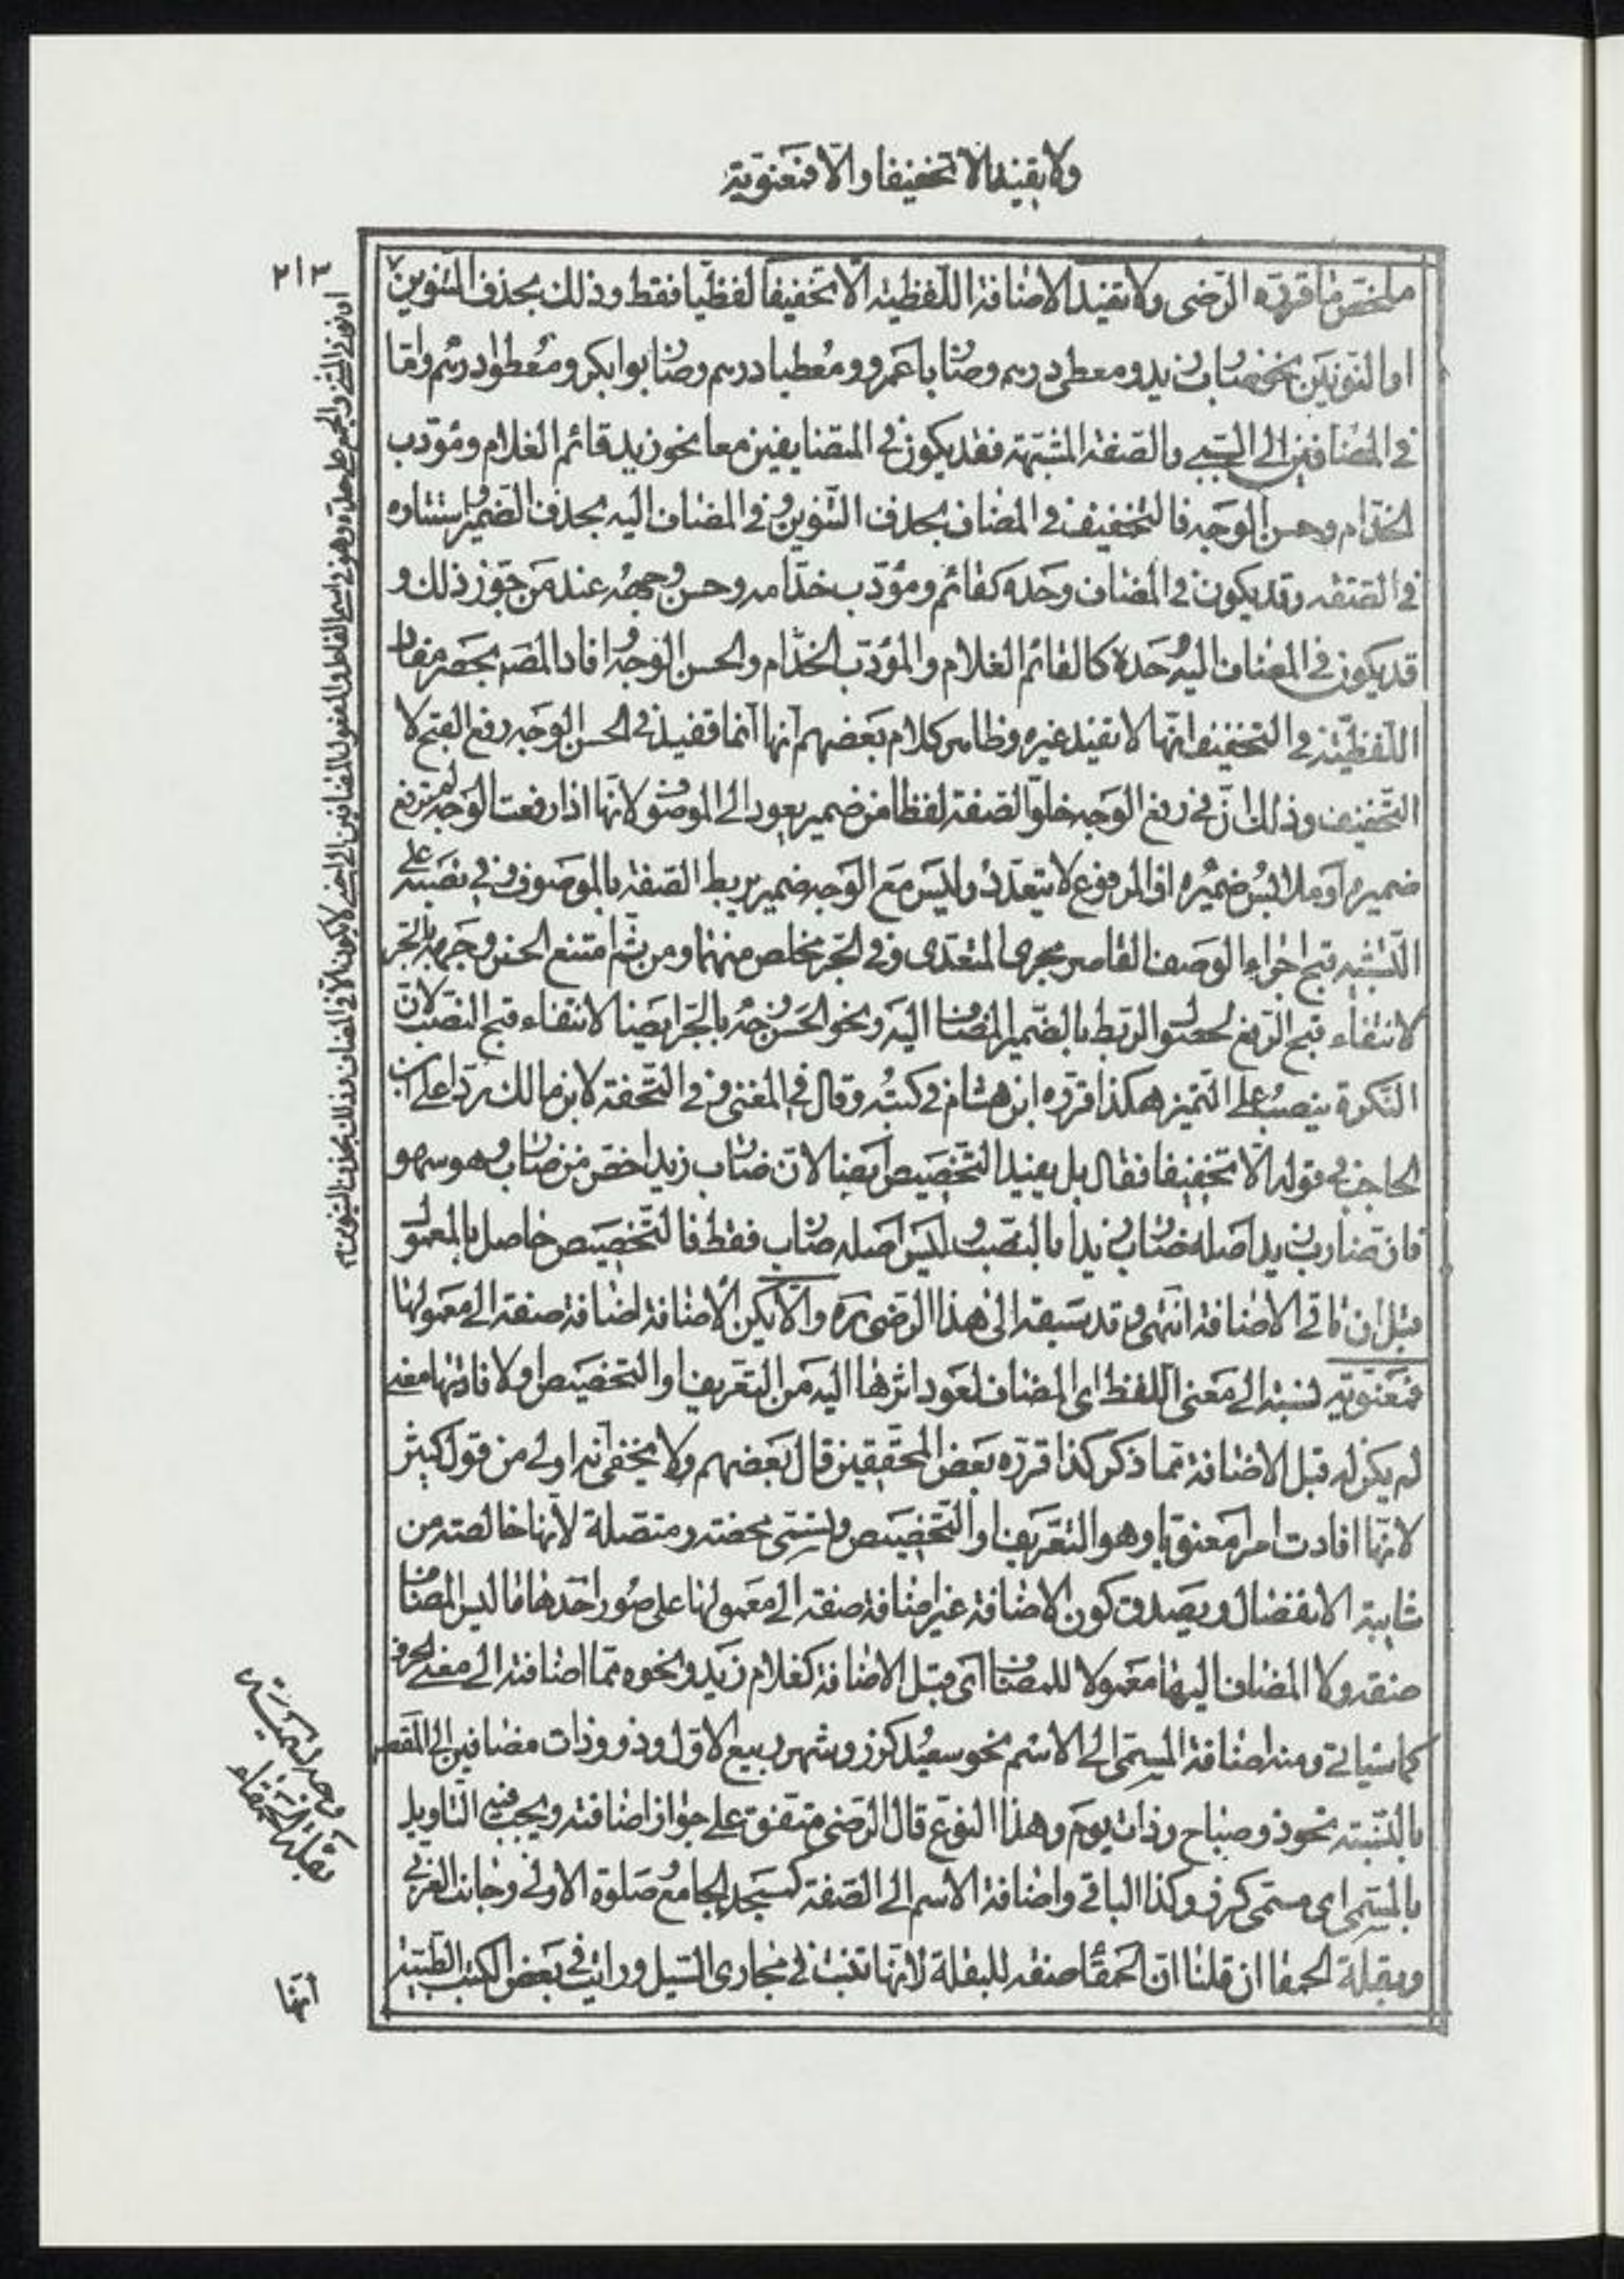 ولا تفيد الا تخفيفا والا فمعنوية
٢١٣
ملخص ما قرره الرضى ولا تفيد الاضافة اللفظية الا تخفيفا لفظيا فقط وذلك بحذف التنوين
او النونين نحو ضارب زيد ومعطى درهم وضاربا عمرو ومعطيا درهم وضاربوا بكر ومعطوا درهم واما
فى المضافين الى السببى والصفة المشبهة فقد يكون فى المتضايفين معا نحو زيد قائم الغلام ومؤدب
الخدام وحسن الوجه فالتخفيف فى المضاف بحذف التنوين وفى المضاف اليه بحذف الضمير واستتاره
فى الصفة وقد يكون فى المضاف وحده كقائم ومؤدب خدامه وحسن وجهه عند من جوز ذلك و
قد يكون فى المضاف اليه وحده كالقائم الغلام والمؤدب الخدام والحسن الوجه وافاد المصه بحصر مفاد
اللفظية فى التخفيف انها لا تفيد غيره وظاهر كلام بعضهم انها انما تفيد فى الحسن الوجه رفع القبح لا
التخفيف وذلك ان فى رفع الوجه خلو الصفة لفظا من ضمير يعود الى الموصوف لانها اذا رفعت الوجه لم ترفع
ضميره او ملابس ضميره اذ المرفوع لا يتعدد وليس مع الوجه ضمير يربط الصفة بالموصوف وفى نصبه على
التشبيه قبح اجراء الوصف القاصر مجرى المتعدى وفى الجر مخلص منهما ومن ثم امتنع الحسن وجهه بالجر
لانتفاء قبح الرفع لحصول الربط بالضمير المضاف اليه ونحو الحسن وجه بالجر ايضا لانتفاء قبح النصب لان
النكرة ينصب على التميز هكذا قرره ابن هشام فى كتبه وقال فى المغنى وفى التحفة لابن مالك رد على ابن
الحاجب فى قوله الا تخفيفا فقال بل يفيد التخصيص ايضا لان ضارب زيد اخص من ضارب وهو سهو
فان ضارب زيد اصله ضارب زيدا بالنصب وليس اصله ضارب فقط فالتخصيص حاصل بالمعمول
قبل ان تاتى الاضافة انتهى وقد سبقه الى هذا الرضى ره والا يكن الاضافة اضافة صفة الى معمولها
فمعنوية نسبة الى معنى اللفظ اى المضاف لعود اثرها اليه من التعريف او التخصيص او لافادتها معنى
لم يكن له قبل الاضافة مما ذكر كذا قرره بعض المحققين قال بعضهم ولا يخفى انه اولى من قول كثير
لانها افادت امرا معنويا وهو التعريف او التخصيص وتسمى محضة ومتصلة لانها خالصة من
شايبة الانفصال ويصدق كون الاضافة غير اضافة صفة الى معمولها على صور احدها ما ليس المضاف
صفة ولا المضاف اليها معمولا للمضاف اى قبل الاضافة كغلام زيد ونحوه مما اضافته الى معنى الحرف
كما سياتى ومنه اضافة المسمى الى الاسم نحو سعيد كرز وشهر ربيع الاول وذو وذات مضافين الى المقصود
بالنسبة نحو ذو صباح وذات يوم وهذا النوع قال الرضى متفق على جواز اضافته ويجب فيه التاويل
بالمسمى اى مسمى كرز وكذا الباقى واضافة الاسم الى الصفة كمسجد الجامع وصلوة الاولى وجانب الغربى
وبقلة الحمقا ان قلنا ان الحمقاء صفة للبقلة لانها تنبت فى مجارى السيل ورايت فى بعض الكتب الطبية
او نونى المثنى والجمع على حده وهو فى اسم الفاعل والمفعول المضافين الى الاجنبى لا يكون الا فى المضاف وذلك بحذف التنوين م
وجه التسمية
بقلة الحمقاء
انها